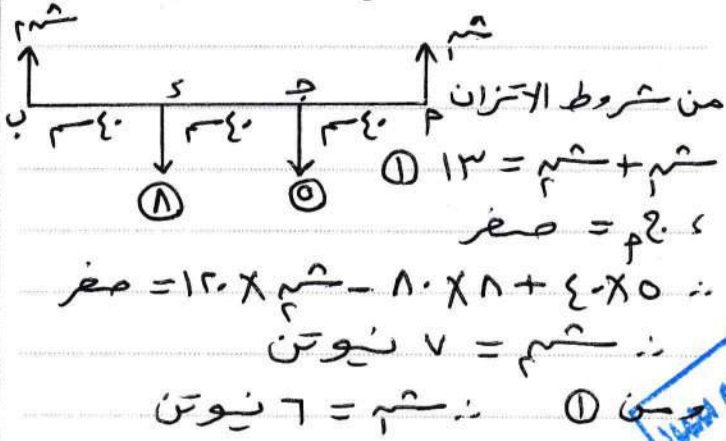 ش٢ ش١
ب ٤٠سم ء ٤٠سم جـ ٤٠سم ٢
٨ ٥
من شروط الاتزان
ش١ + ش٢ = ١٣ ①
، ج٢ = صفر
∴ ٥ × ٤٠ + ٨ × ٨٠ − ش٢ × ١٢٠ = صفر
∴ ش٢ = ٧ نيوتن
ومن ① ∴ ش١ = ٦ نيوتن